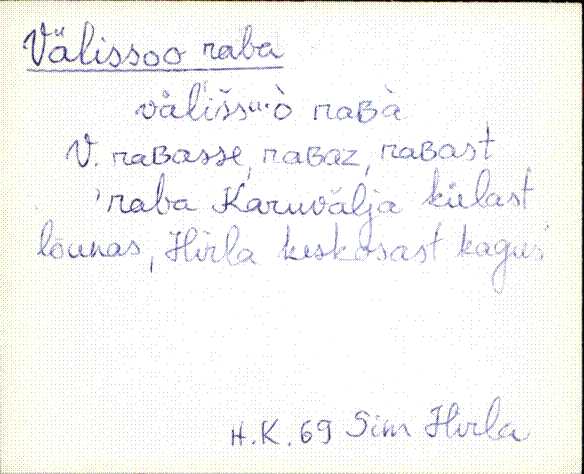 Välissoo raba
väl'išsᵘ·ò raʙà
V. raʙasse, raʙaz, raʙast
'raba Karuvälja külast
lõunas, Hirla keskosast kagus'
H.K. 69 Sim Hirla